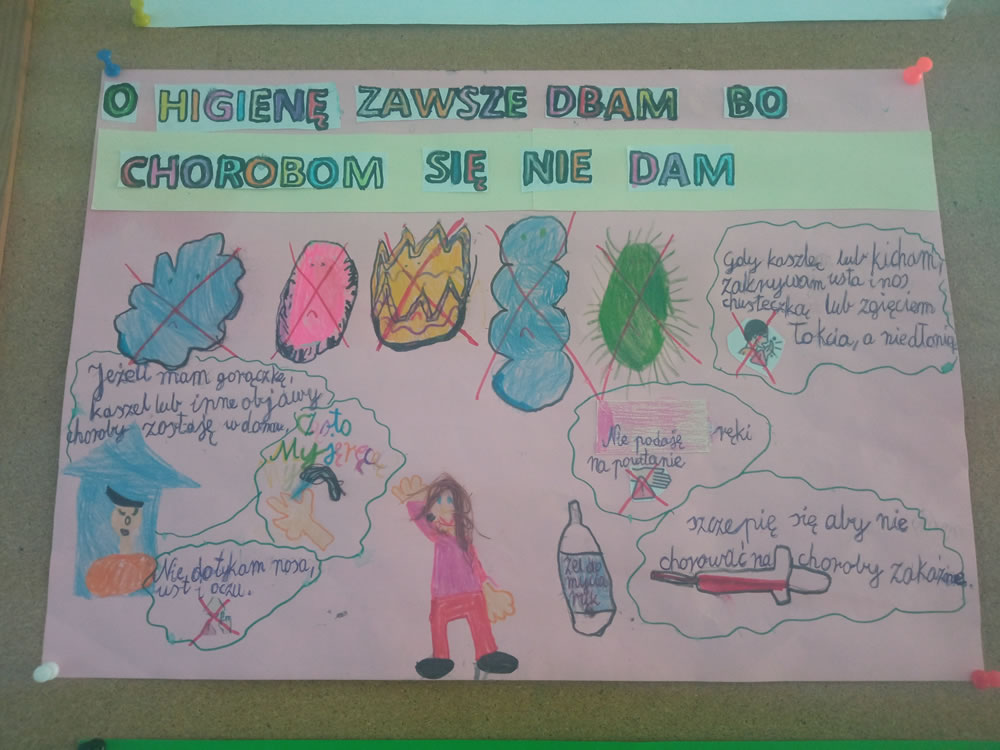 O HIGIENĘ ZAWSZE DBAM BO
CHOROBOM SIĘ NIE DAM
Gdy kaszlę lub kicham,
zakrywam usta i nos
chusteczką lub zgięciem
łokcia, a nie dłonią
Jeżeli mam gorączkę,
kaszel lub inne objawy
choroby zostaję w domu,
Często
Myję ręce
Nie podaję ręki
na powitanie
Nie dotykam nosa,
ust i oczu.
szczepię się aby nie
chorować na choroby zakaźne.
Żel do
mycia
rąk